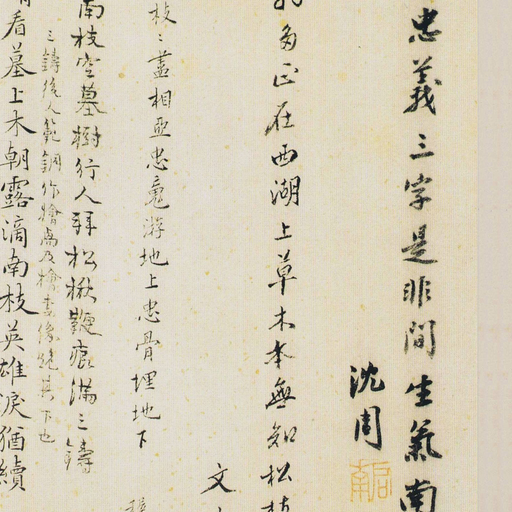 忠義三字是非間生氣南
沈周
多正在西湖上草木本無知松枝
文
枝〻盡相亞忠魂游地上忠骨埋地下
南枝空墓樹行人拜松楸鞭痕滿三鑄
三鑄後人範銅作檜卨及檜妻像跪其下也
看墓上木朝露滴南枝英雄淚猶續